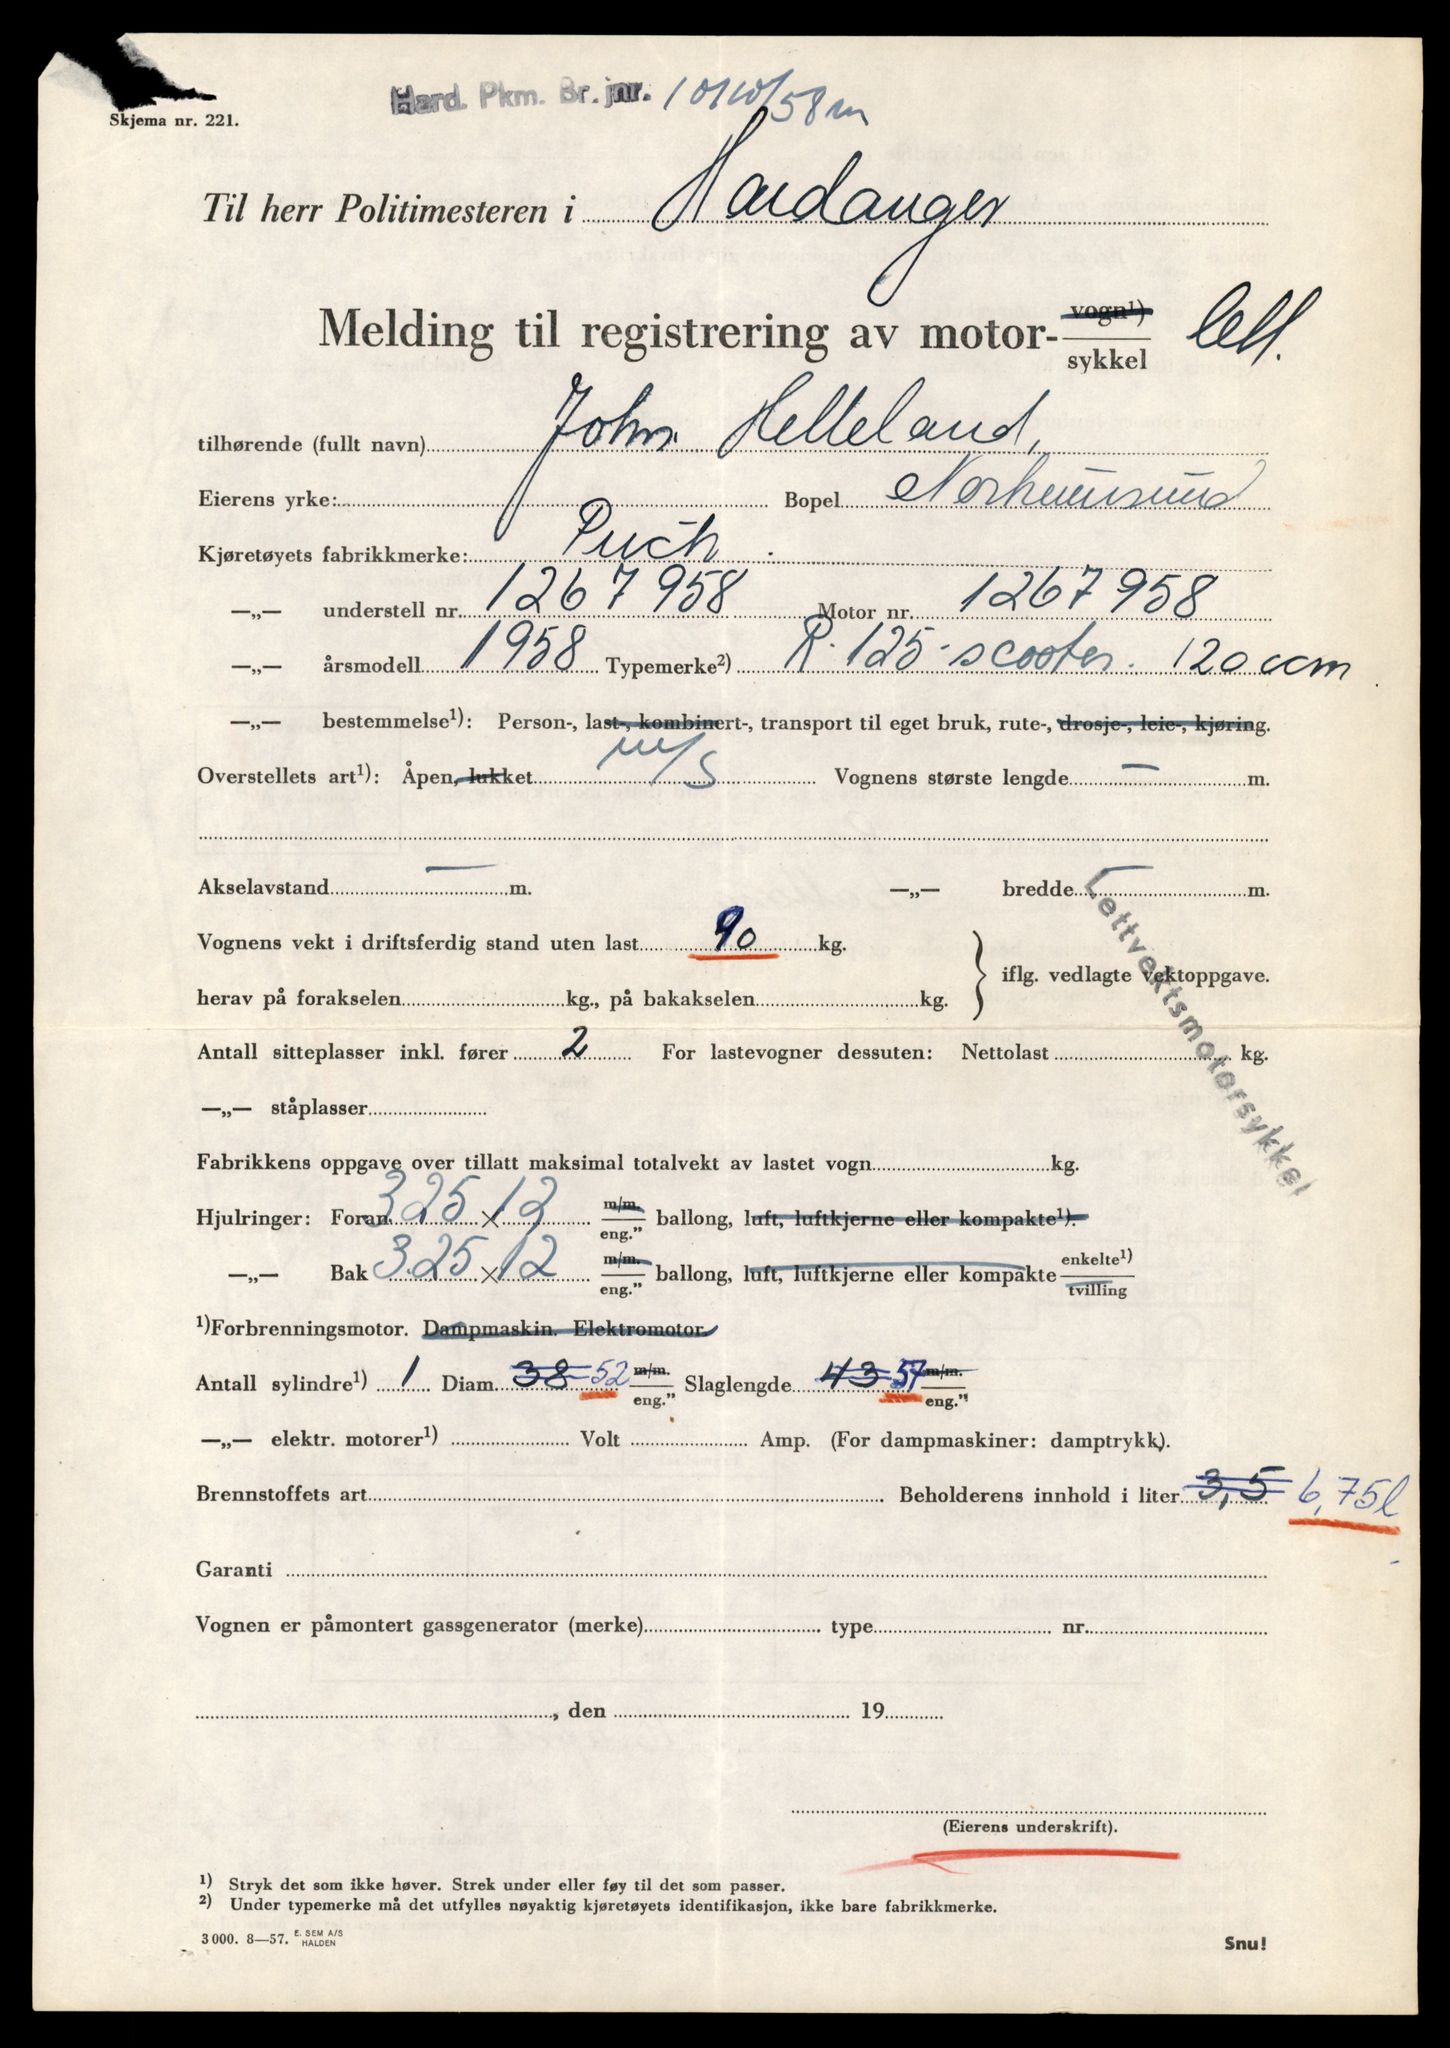 Hard. Pkm. Br. jnr. /58 m
Skjema nr. 221.
Til herr Politimesteren i Hardanger
Melding til registrering av motor- vogn¹) sykkel lett.
tilhørende (fullt navn) John Helleland,
Eierens yrke: Bopel Norheimsund
Kjøretøyets fabrikkmerke: Puch
—„— understell nr. 1267958 Motor nr. 1267958
—„— årsmodell 1958 Typemerke²) R. 125-scooter. 120 ccm
—„— bestemmelse¹): Person-, last-, kombinert-, transport til eget bruk, rute-, drosje-, leie-, kjøring.
Overstellets art¹): Åpen, lukket m/s Vognens største lengde — m.
Akselavstand — m. —„— bredde — m.
Lettvektsmotorsykkel
Vognens vekt i driftsferdig stand uten last 90 kg.
iflg. vedlagte vektoppgave.
herav på forakselen kg., på bakakselen kg.
Antall sitteplasser inkl. fører 2 For lastevogner dessuten: Nettolast kg.
—„— ståplasser
Fabrikkens oppgave over tillatt maksimal totalvekt av lastet vogn kg.
Hjulringer: Foran 3.25 × 12 m/m. eng." ballong, luft, luftkjerne eller kompakte¹).
—„— Bak 3.25 × 12 m/m. eng." ballong, luft, luftkjerne eller kompakte enkelte¹) tvilling
¹)Forbrenningsmotor. Dampmaskin. Elektromotor.
Antall sylindre¹) 1 Diam. 38 52 m/m. eng." Slaglengde 43 57 m/m. eng."
—„— elektr. motorer¹) Volt Amp. (For dampmaskiner: damptrykk).
Brennstoffets art Beholderens innhold i liter 3,5 6,75 l
Garanti
Vognen er påmontert gassgenerator (merke) type nr.
, den 19
(Eierens underskrift).
¹) Stryk det som ikke høver. Strek under eller føy til det som passer.
²) Under typemerke må det utfylles nøyaktig kjøretøyets identifikasjon, ikke bare fabrikkmerke.
3 000. 8—57. E. SEM A/S HALDEN
Snu!